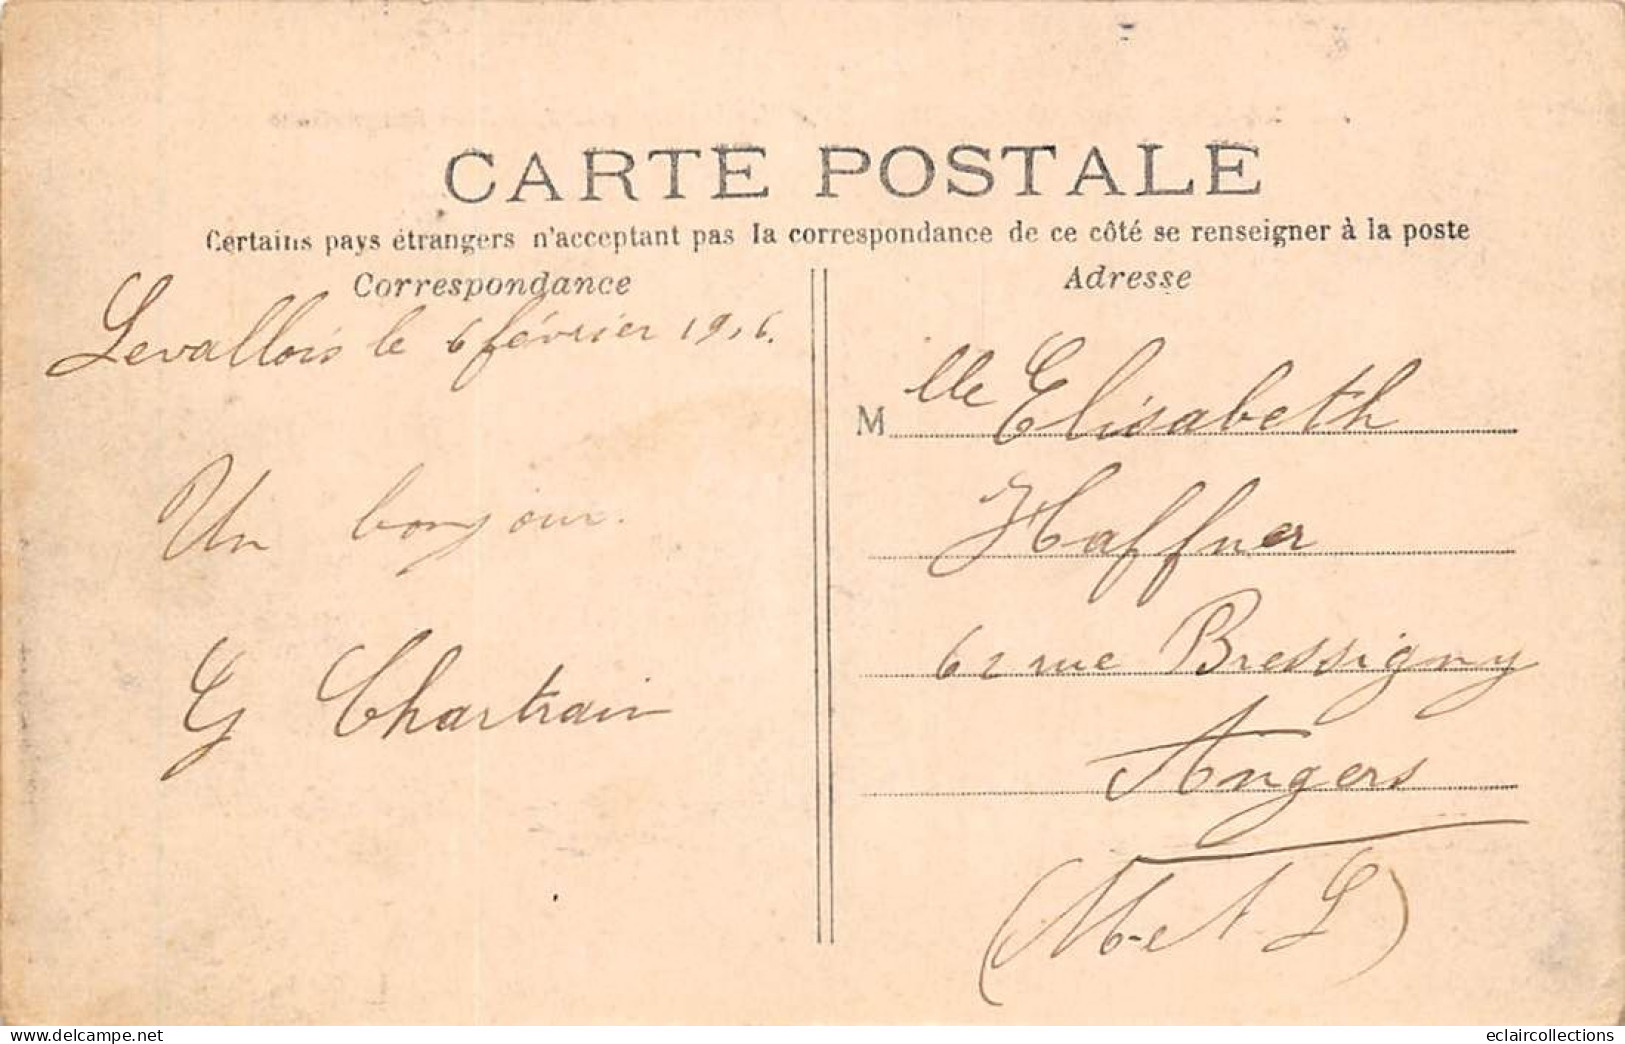 CARTE POSTALE
Certains pays étrangers n'acceptant pas la correspondance de ce côté se renseigner à la poste
Correspondance
Levallois le 6 février 1916.
Un bonjour.
G Chartrain
Adresse
Mlle Elisabeth
Haffner
62 rue Bressigny
Angers
(M-et L)
eclaircollections